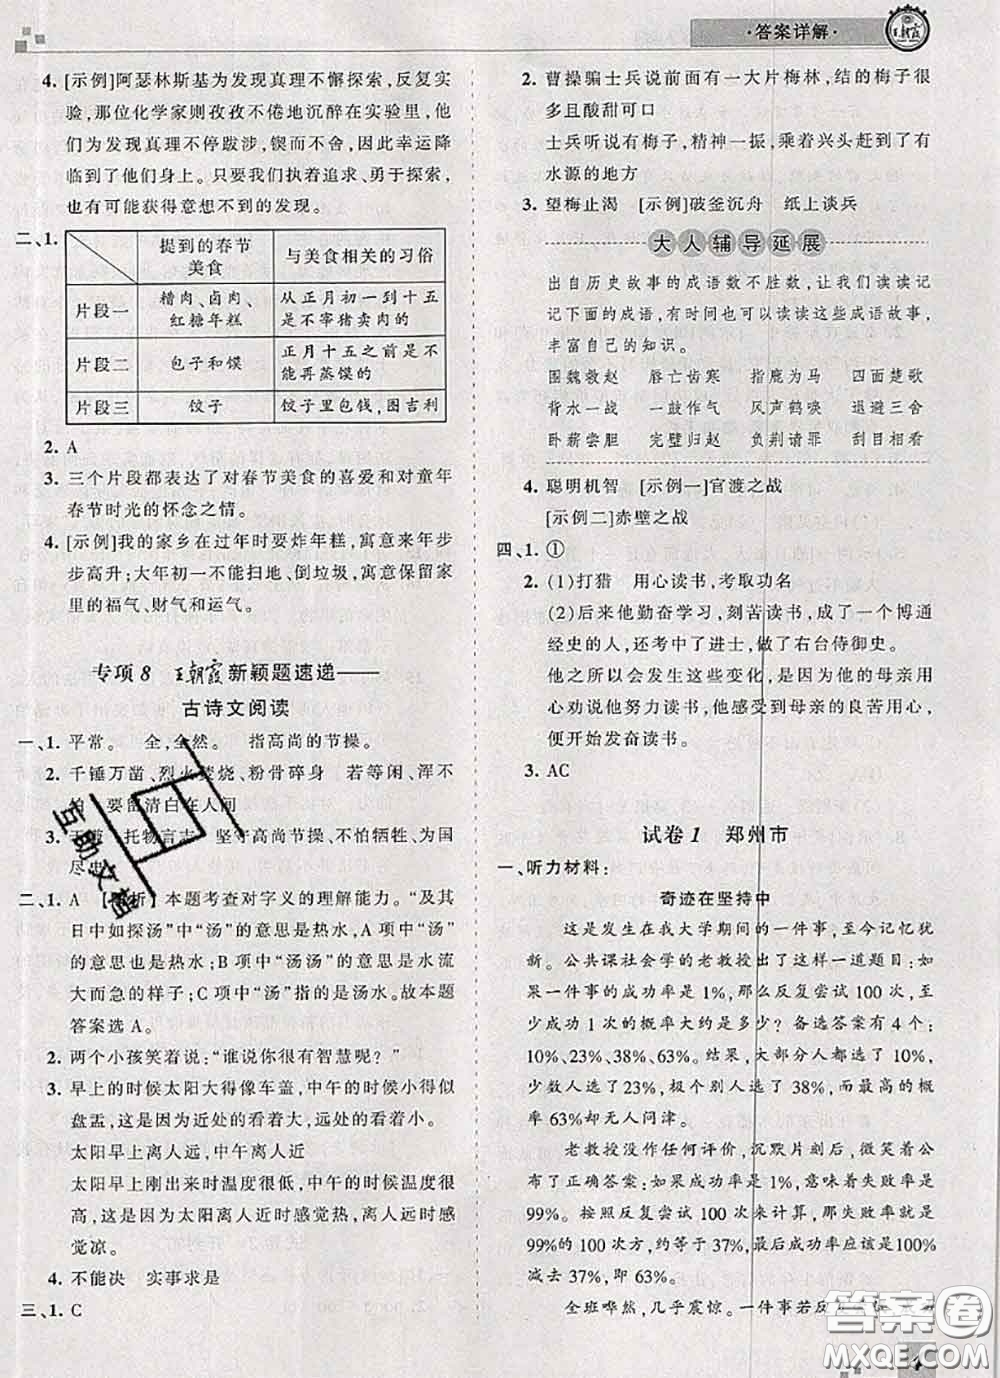 ·答案详解·
王朝霞
4. [示例]阿瑟林斯基为发现真理不懈探索,反复实
验,那位化学家则孜孜不倦地沉醉在实验里,他
们为发现真理不停跋涉,锲而不舍,因此幸运降
临到了他们身上。只要我们执着追求、勇于探索,
也有可能获得意想不到的发现。
二、1.
提到的春节美食 与美食相关的习俗
片段一 糟肉、卤肉、红糖年糕 从正月初一到十五是不宰猪卖肉的
片段二 包子和馍 正月十五之前是不能再蒸馍的
片段三 饺子 饺子里包钱,图吉利
2. A
3. 三个片段都表达了对春节美食的喜爱和对童年
春节时光的怀念之情。
4. [示例]我的家乡在过年时要炸年糕,寓意来年步
步高升;大年初一不能扫地、倒垃圾,寓意保留家
里的福气、财气和运气。
专项8 王朝霞新颖题速递——
古诗文阅读
一、1. 平常。 全,全然。 指高尚的节操。
2. 千锤万凿、烈火焚烧、粉骨碎身 若等闲、浑不
怕 要留清白在人间
3. 于谦 托物言志 坚守高尚节操、不怕牺牲、为国
尽忠
二、1. A [解析]本题考查对字义的理解能力。“及其
日中如探汤”中“汤”的意思是热水,A项中“汤”
的意思也是热水;B项中“汤汤”的意思是水流
大而急的样子;C项中“汤”指的是汤水。故本题
答案选A。
2. 两个小孩笑着说:“谁说你很有智慧呢?”
3. 早上的时候太阳大得像车盖,中午的时候小得似
盘盂,这是因为近处的看着大,远处的看着小。
太阳早上离人远,中午离人近
太阳早上刚出来时温度很低,中午的时候温度很
高,这是因为太阳离人近时感觉热,离人远时感
觉凉。
4. 不能决 实事求是
三、1. C
2. 曹操骗士兵说前面有一大片梅林,结的梅子很
多且酸甜可口
士兵听说有梅子,精神一振,乘着兴头赶到了有
水源的地方
3. 望梅止渴 [示例]破釜沉舟 纸上谈兵
大人辅导延展
出自历史故事的成语数不胜数,让我们读读记
记下面的成语,有时间也可以读读这些成语故事,
丰富自己的知识。
围魏救赵 唇亡齿寒 指鹿为马 四面楚歌
背水一战 一鼓作气 风声鹤唳 退避三舍
卧薪尝胆 完璧归赵 负荆请罪 刮目相看
4. 聪明机智 [示例一]官渡之战
[示例二]赤壁之战
四、1. ①
2. (1)打猎 用心读书,考取功名
(2)后来他勤奋学习,刻苦读书,成了一个博通
经史的人,还考中了进士,做了右台侍御史。
他之所以会发生这些变化,是因为他的母亲
用心劝说他努力读书,他感受到母亲的良苦用心,
便开始发奋读书。
3. AC
试卷1 郑州市
一、听力材料:
奇迹在坚持中
这是发生在我大学期间的一件事,至今记忆犹
新。公共课社会学的老教授出了这样一道题目:如
果一件事的成功率是1%,那么反复尝试100次,至
少成功1次的概率大约是多少?备选答案有4个:
10%、23%、38%、63%。结果,大部分人都选了10%,
少数人选了23%,极个别人选了38%,而最高的概
率63%却无人问津。
老教授没作任何评价,沉默片刻后,微笑着公
布了正确答案:如果成功率是1%,意味着失败率是
99%。按照反复尝试100次来计算,那失败率就是
99%的100次方,约等于37%,最后成功率应该是100%
减去37%,即63%。
全班哗然,几乎震惊。一件事若反
互助文档
答案圈
MXQE.COM